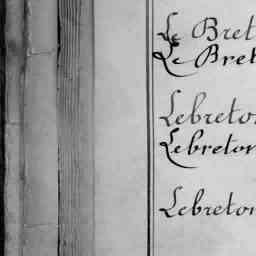 Le Bret
Le Bret
Lebreton
Lebreton
Lebreton